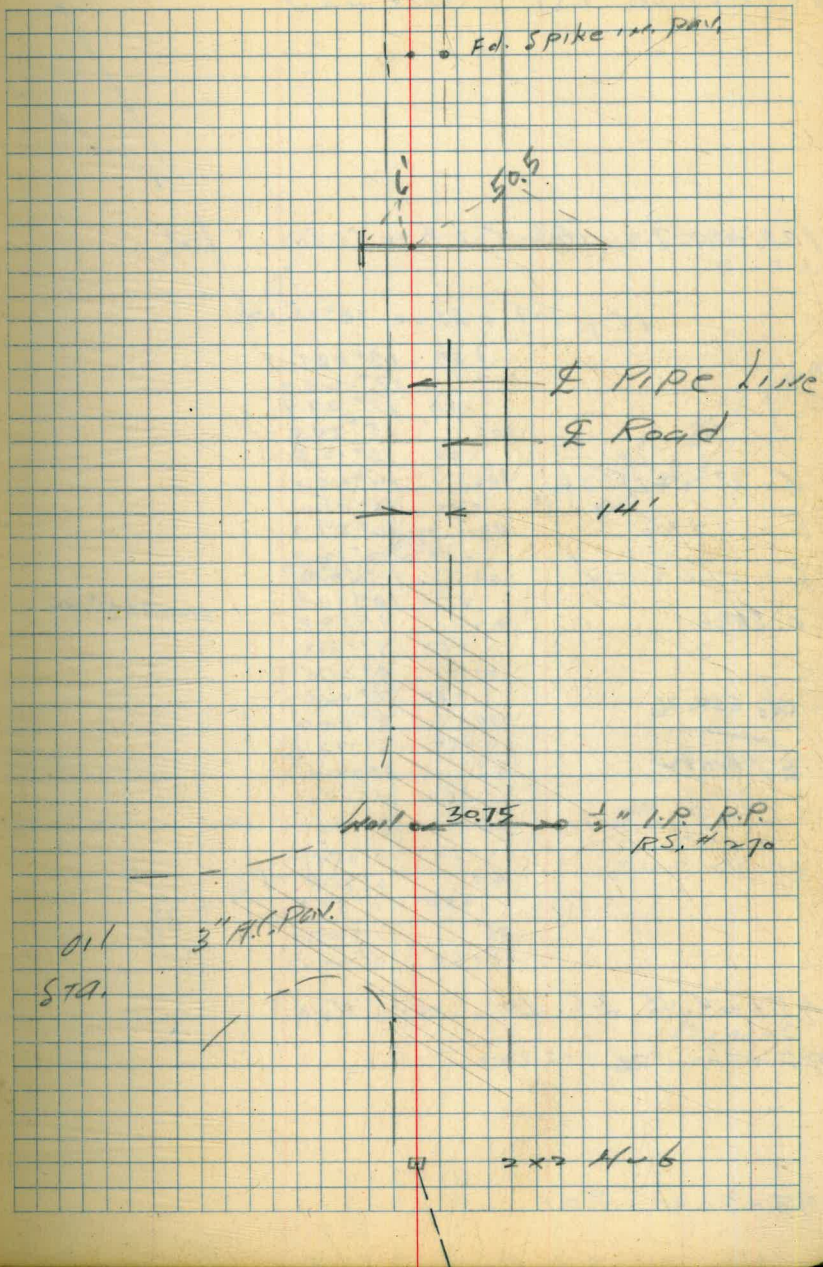 Fd. Spike in pav.
50.5
℄ Pipe Line
℄ Road
14'
30.75
½" I.P. R.P.
R.S. # 270
3" A.C. Pav.
Oil
Sta.
2x2 Hub